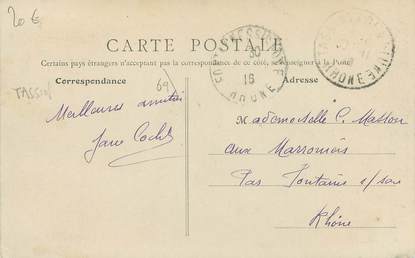 20 €
CARTE POSTALE
Certains pays étrangers n'acceptant pas la correspondance de ce côté, se renseigner à la Poste.
Correspondance
Adresse
TASSIN
69
Meilleures amitiés
Jane
Mademoiselle C. Masson
aux Marronniers
Fontaine s/ Saône
Rhône
RHONE
16
RHONE